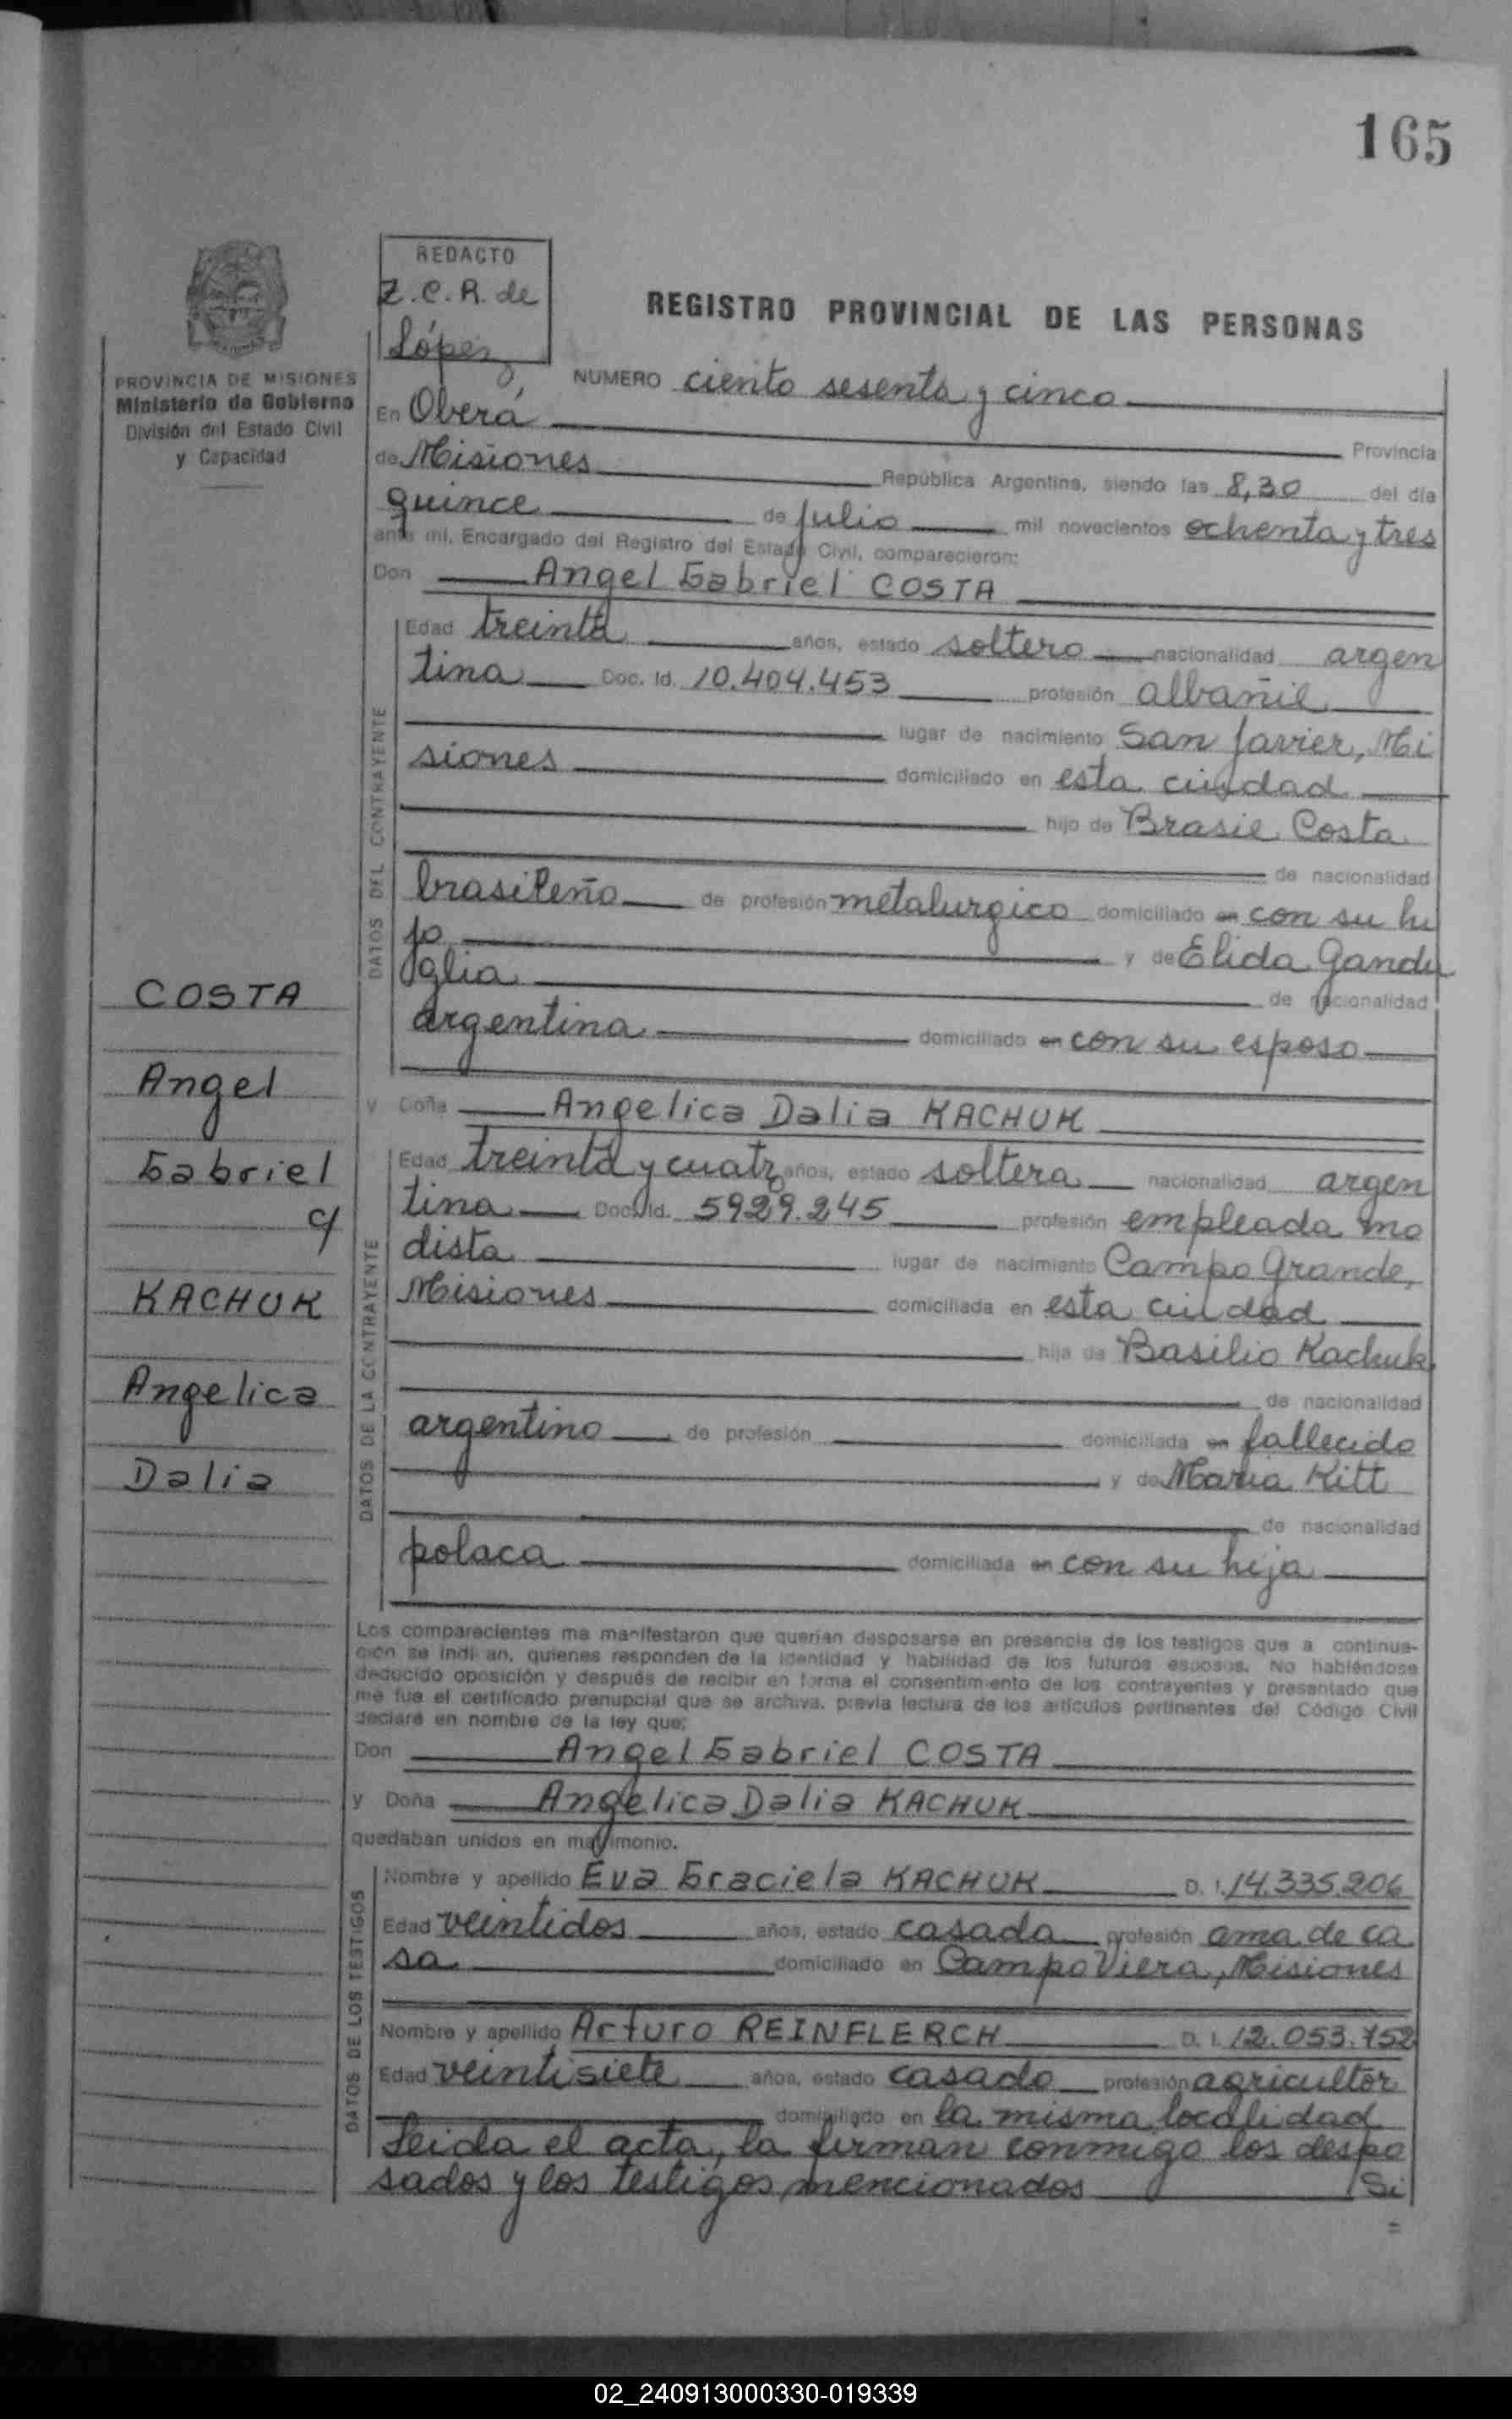 165
REDACTO
Z.C.R. de
López
REGISTRO PROVINCIAL DE LAS PERSONAS
PROVINCIA DE MISIONES
Ministerio de Gobierno
División del Estado Civil
y Capacidad
NUMERO ciento sesenta y cinco
En Oberá
Provincia
de Misiones República Argentina, siendo las 8,30 del día
quince de julio mil novecientos ochenta y tres
ante mí, Encargado del Registro del Estado Civil, comparecieron:
Don Angel Gabriel COSTA
DATOS DEL CONTRAYENTE
Edad treinta años, estado soltero nacionalidad argen
tina Doc. Id. 10.404.453 profesión albañil
lugar de nacimiento San Javier, Mi
siones domiciliado en esta ciudad
hijo de Brasil Costa
de nacionalidad
brasileño de profesión metalurgico domiciliado en con su hi
jo y de Elida Gandu
glia de nacionalidad
argentina domiciliado en con su esposo
COSTA
Angel
Gabriel
c/
KACHUK
Angelica
Dalia
y Doña Angelica Dalia KACHUK
DATOS DE LA CONTRAYENTE
Edad treinta y cuatro años, estado soltera nacionalidad argen
tina Doc. Id. 5929.245 profesión empleada mo
dista lugar de nacimiento Campo Grande,
Misiones domiciliada en esta ciudad
hija de Basilio Kachuk
de nacionalidad
argentino de profesión domiciliada en fallecido
y de Maria Kitt
de nacionalidad
polaca domiciliada en con su hija
Los comparecientes me manifestaron que querían desposarse en presencia de los testigos que a continua-
ción se indican, quienes responden de la identidad y habilidad de los futuros esposos. No habiéndose
deducido oposición y después de recibir en forma el consentimiento de los contrayentes y presentado que
me fue el certificado prenupcial que se archiva, previa lectura de los artículos pertinentes del Código Civil
declaré en nombre de la ley que:
Don Angel Gabriel COSTA
y Doña Angelica Dalia KACHUK
quedaban unidos en matrimonio.
DATOS DE LOS TESTIGOS
Nombre y apellido Eva Graciela KACHUK D. I. 14.335.206
Edad veintidos años, estado casada profesión ama de ca
sa domiciliado en Campo Viera, Misiones
Nombre y apellido Arturo REINFLERCH D. I. 12.053.752
Edad veintisiete años, estado casado profesión agricultor
domiciliado en la misma localidad
Leida el acta, la firman conmigo los despo
sados y los testigos mencionados Si
=
02_240913000330-019339